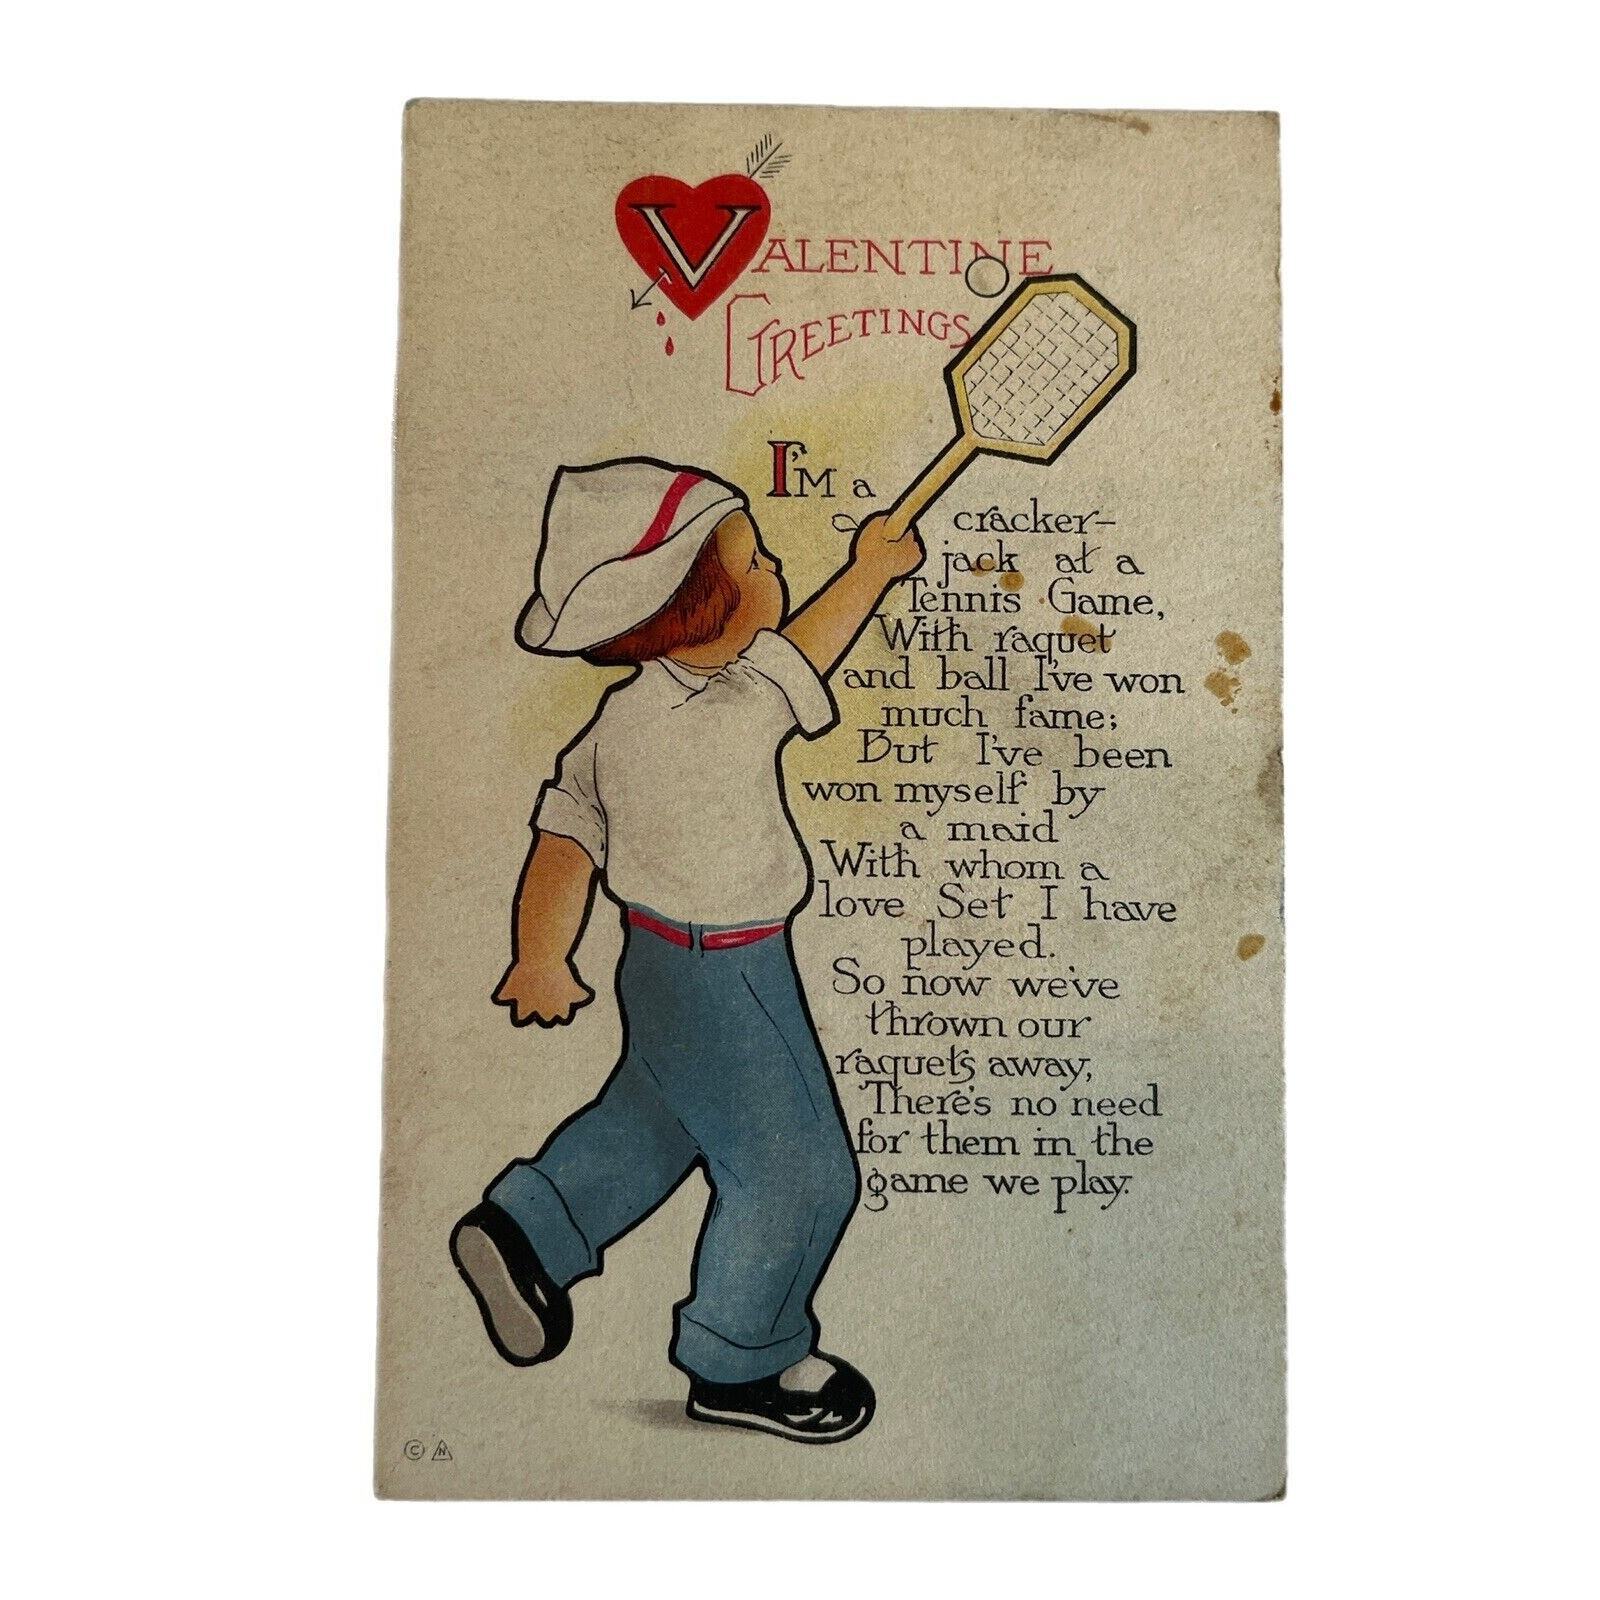 VALENTINE
GREETINGS
I'M a
cracker-
jack at a
Tennis Game,
With raquet
and ball I've won
much fame;
But I've been
won myself by
a maid
With whom a
love Set I have
played.
So now we've
thrown our
raquets away,
There's no need
for them in the
game we play.
© N